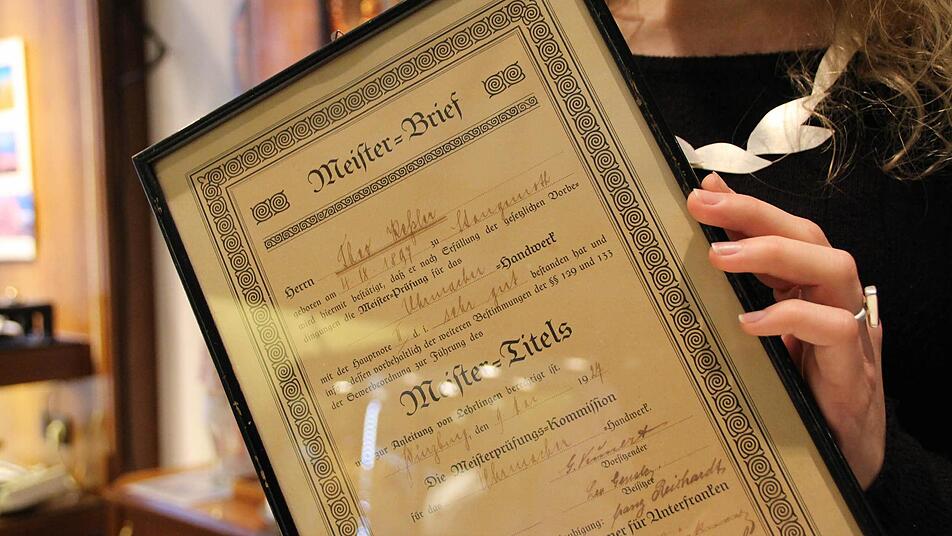 Meister-Brief
Herrn
geboren am 4. 1897 zu
wird hiermit bestätigt, daß er nach Erfüllung der gesetzlichen Vorbe-
dingungen die Meister-Prüfung für das
Uhrmacher-Handwerk
mit der Hauptnote I d. i. sehr gut bestanden hat und
infolgedessen vorbehaltlich der weiteren Bestimmungen der §§ 129 und 133
der Gewerbeordnung zur Führung des
Meister-Titels
und zur Anleitung von Lehrlingen berechtigt ist.
Würzburg, den 1924
Die Meisterprüfungs-Kommission
für das Uhrmacher-Handwerk.
Vorsitzender
Beisitzer
Franz Reichardt
für Unterfranken